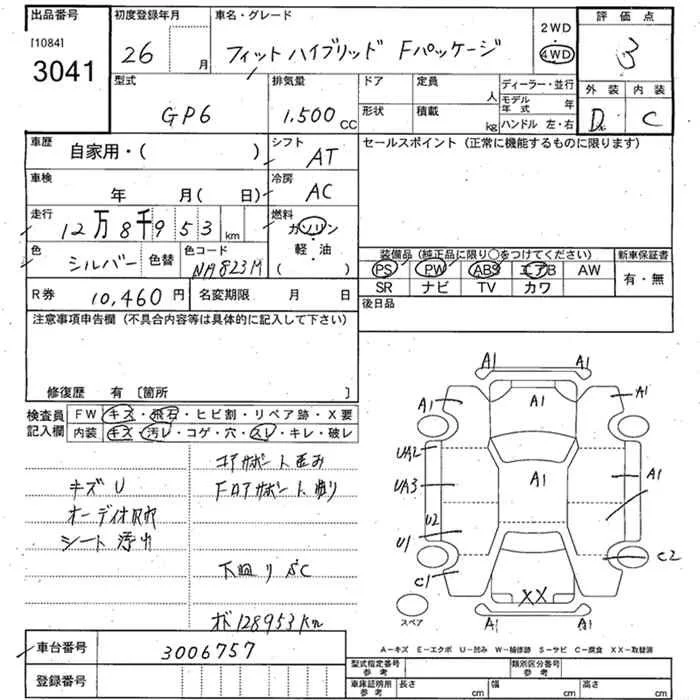 出品番号 初度登録年月 車名・グレード 2WD 評価点
[1084] 4WD
3041 26 月 フィットハイブリッド Fパッケージ 3
型式 排気量 ドア 定員 人 ディーラー・並行 外装 内装
モデル年式 年
GP6 1.500 CC 形状 積載 kg ハンドル 左・右 D C
車歴 自家用・( ) シフト AT セールスポイント(正常に機能するものに限ります)
車検 年 月( 日) 冷房 AC
走行 12万8千953 km 燃料 ガソリン
軽・油
( )
色 シルバー 色替 色コード NA823M 装備品(純正品に限り○をつけてください) 新車保証書
PS PW ABS エアB AW 有・無
SR ナビ TV カワ
R券 10,460 円 名変期限 月 日 後日品
注意事項申告欄(不具合内容等は具体的に記入して下さい)
修復歴 有 [箇所 ]
検査員 記入欄
FW キズ・飛石・ヒビ割・リペア跡・X要
内装 キズ・汚レ・コゲ・穴・スレ・キレ・破レ
コアサポート
キズ U Fロアサポート
オーディオ
シート 汚れ
下廻り SC
128953km
A1 A1
A1 A1 A1
UA2
UA3 A1 A1
U2
U1 C2
C1
XX
A1 A1
スペア
A-キズ E-エクボ U-凹み W-補修跡 S-サビ C-腐食 XX-取替済
車台番号 3006757
登録番号
型式指定番号 参考 類別区分番号 参考
車庫証明用 参考 長さ cm 幅 cm 高さ cm